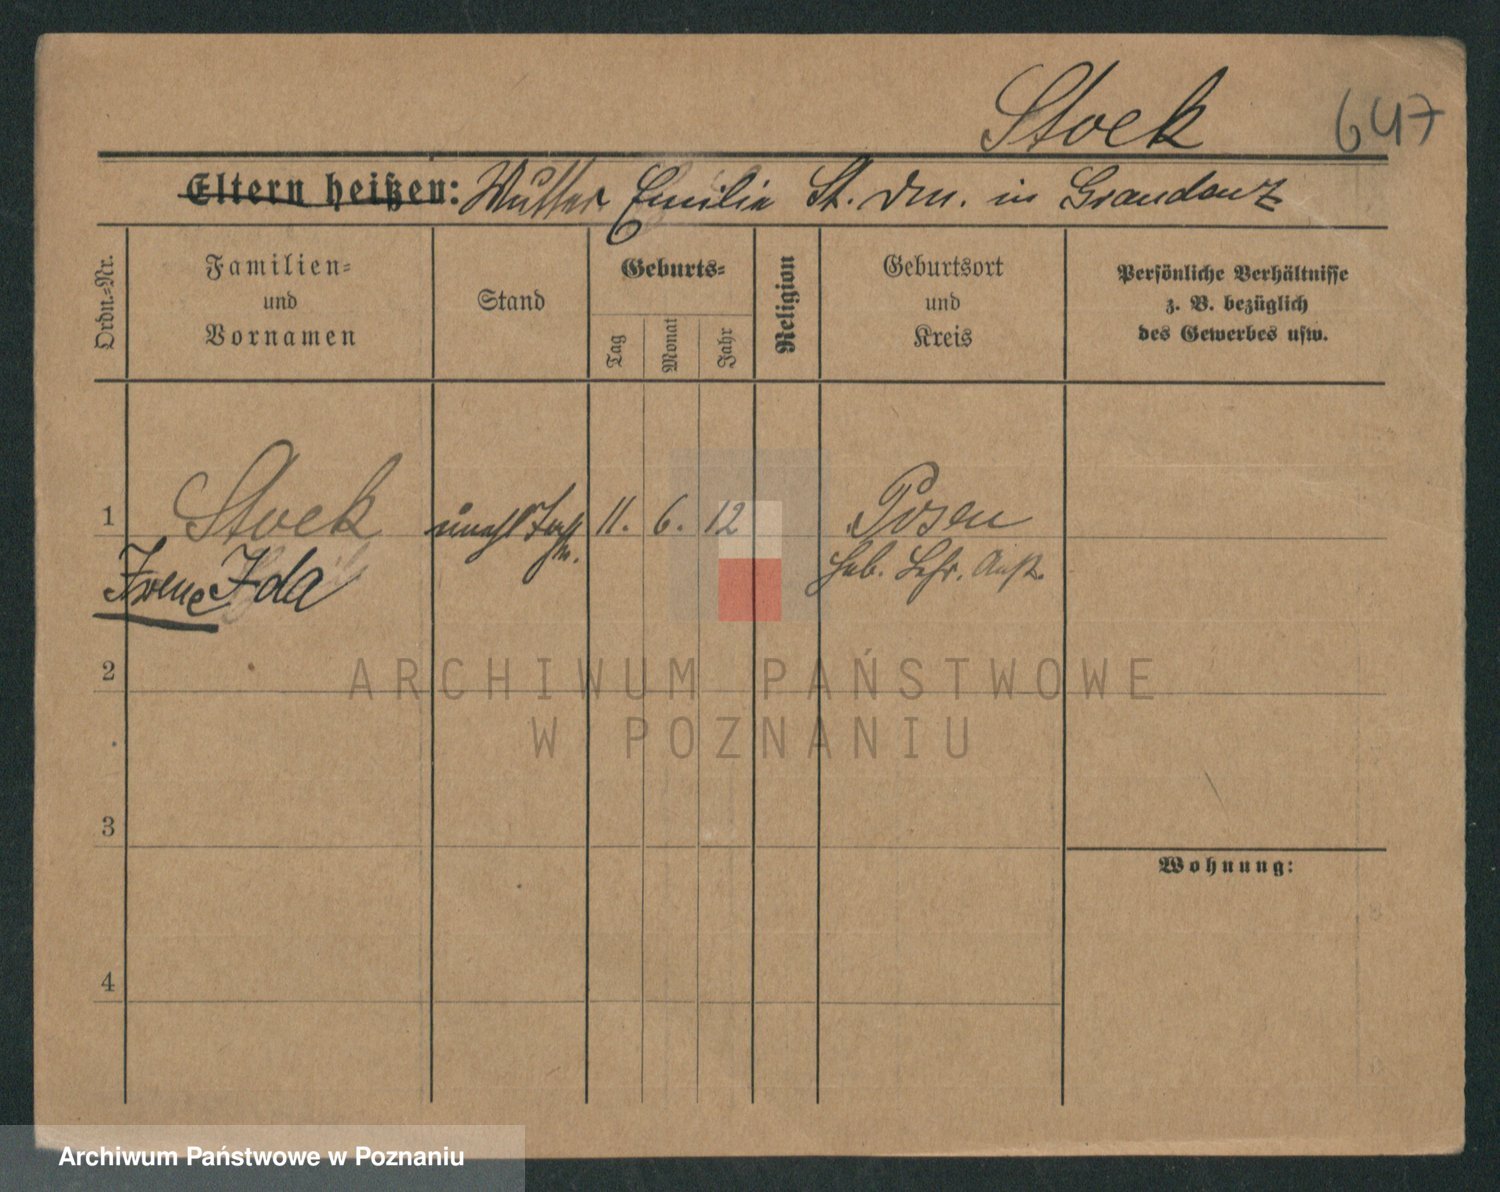 Stoek
647
Eltern heißen: Mutter Emilie St. Dm. in Graudenz
Ordn.=Nr.
Familien=
und
Vornamen
Stand
Geburts=
Tag
Monat
Jahr
Religion
Geburtsort
und
Kreis
Persönliche Verhältnisse
z. B. bezüglich
des Gewerbes usw.
1
Stoek
Irene Ida
unehl
11. 6. 12
Posen
Heb. Lehr. Anst.
2
3
4
Wohnung:
ARCHIWUM PAŃSTWOWE
W POZNANIU
Archiwum Państwowe w Poznaniu